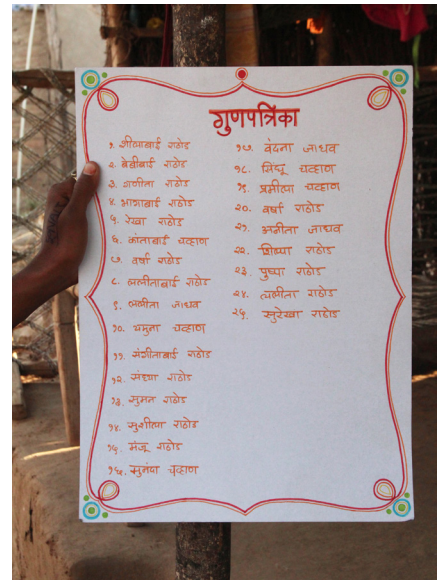 गुणपत्रिका
१. शीलाबाई राठोड
२. बेबीबाई राठोड
३. गणीता राठोड
४. भागाबाई राठोड
५. रेखा राठोड
६. कांताबाई चव्हाण
७. वर्षा राठोड
८. ललीताबाई राठोड
९. ललीता जाधव
१०. यमुना चव्हाण
११. संगीताबाई राठोड
१२. संध्या राठोड
१३. सुमन राठोड
१४. सुशीला राठोड
१५. मंजू राठोड
१६. चव्हाण
१७. वंदना जाधव
१८. सिंधू चव्हाण
१९. प्रमीला चव्हाण
२०. वर्षा राठोड
२१. अनीता जाधव
२२. शिल्पा राठोड
२३. पुष्पा राठोड
२४. ललीता राठोड
२५. सुरेखा राठोड